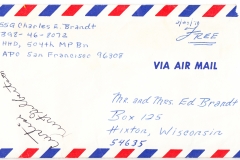 SSG Charles E. Brandt
393-46-8073
HHD, 504th MP Bn
APO San Francisco 96308
FREE
VIA AIR MAIL
Mr and Mrs Ed Brandt
Box 125
Hixton, Wisconsin
54635